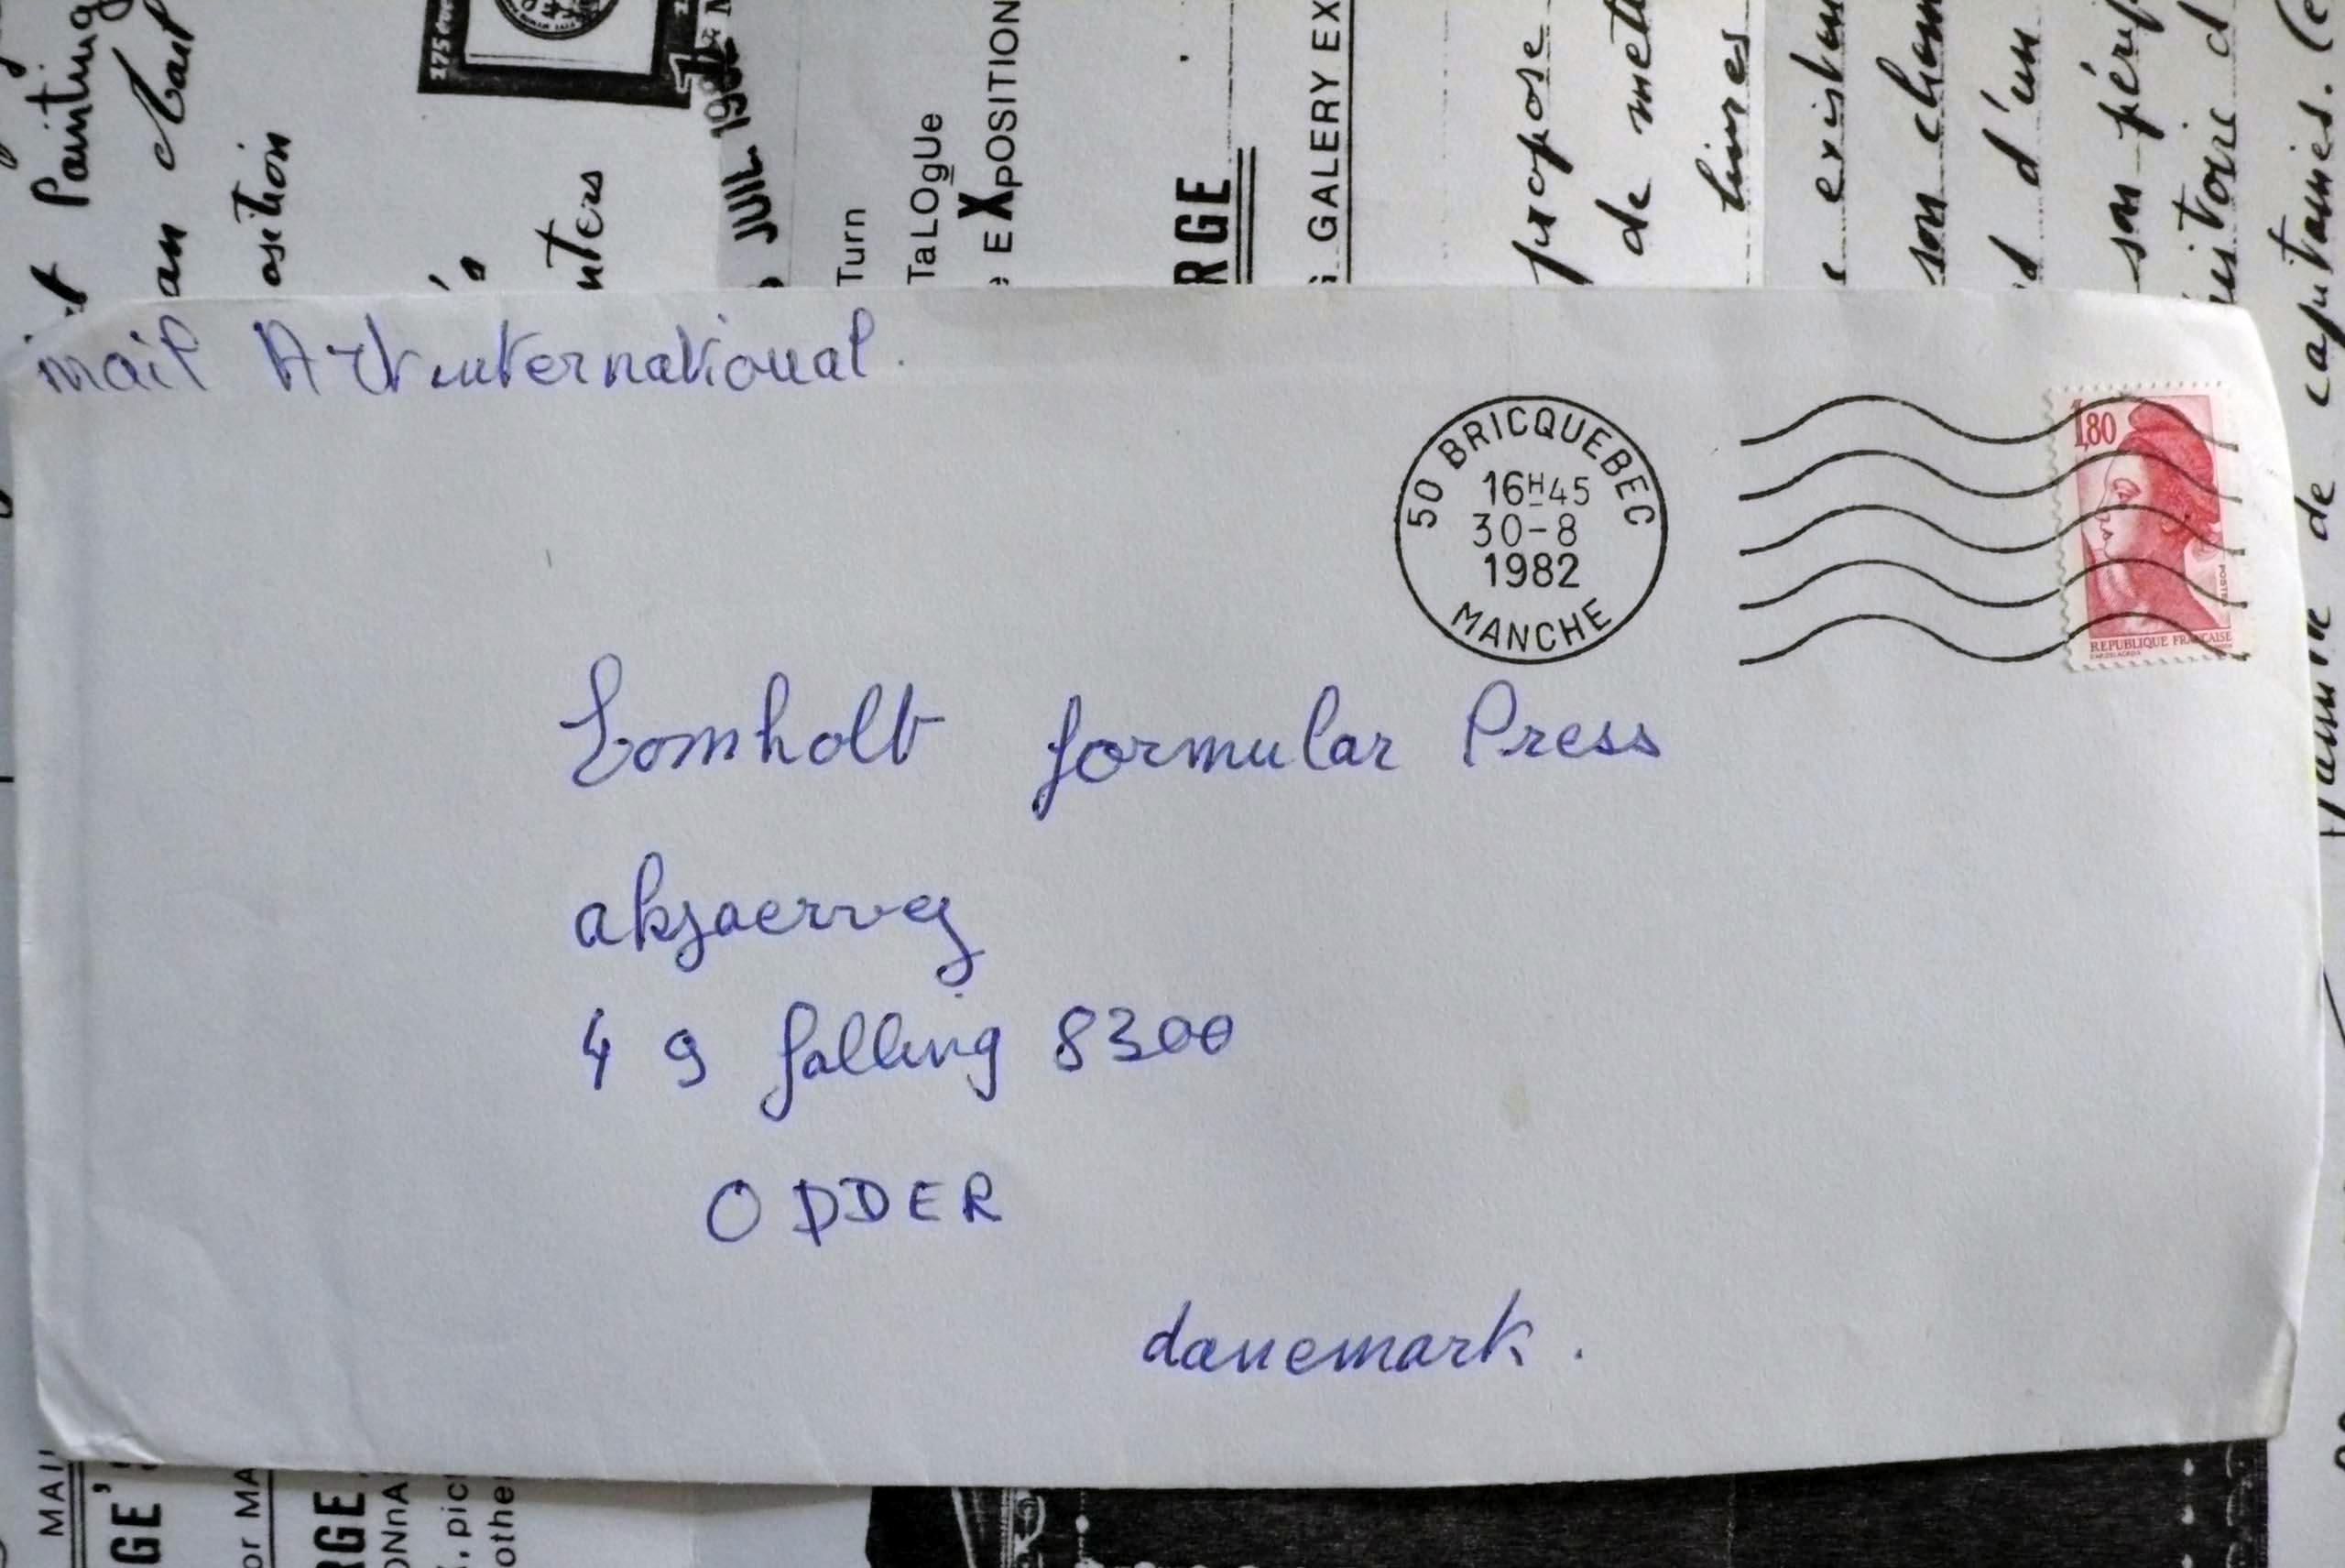 Painting
an chart
osition
nters
JUIL 198
Turn
TaLOgUe
EXpOSITION
RGE
GALERY EX
propose
de mett
livres
existen
son chem
d'un
son péri
capitaines. (e
de
mail Art international.
50 BRICQUEBEC
16H45
30-8
1982
MANCHE
1,80
REPUBLIQUE FRANÇAISE
Lomholt formular Press
aksaerveg
4 9 falling 8300
ODDER
danemark.
MAI
GE'S
or MA
RGE
ONnA
, pic
othe